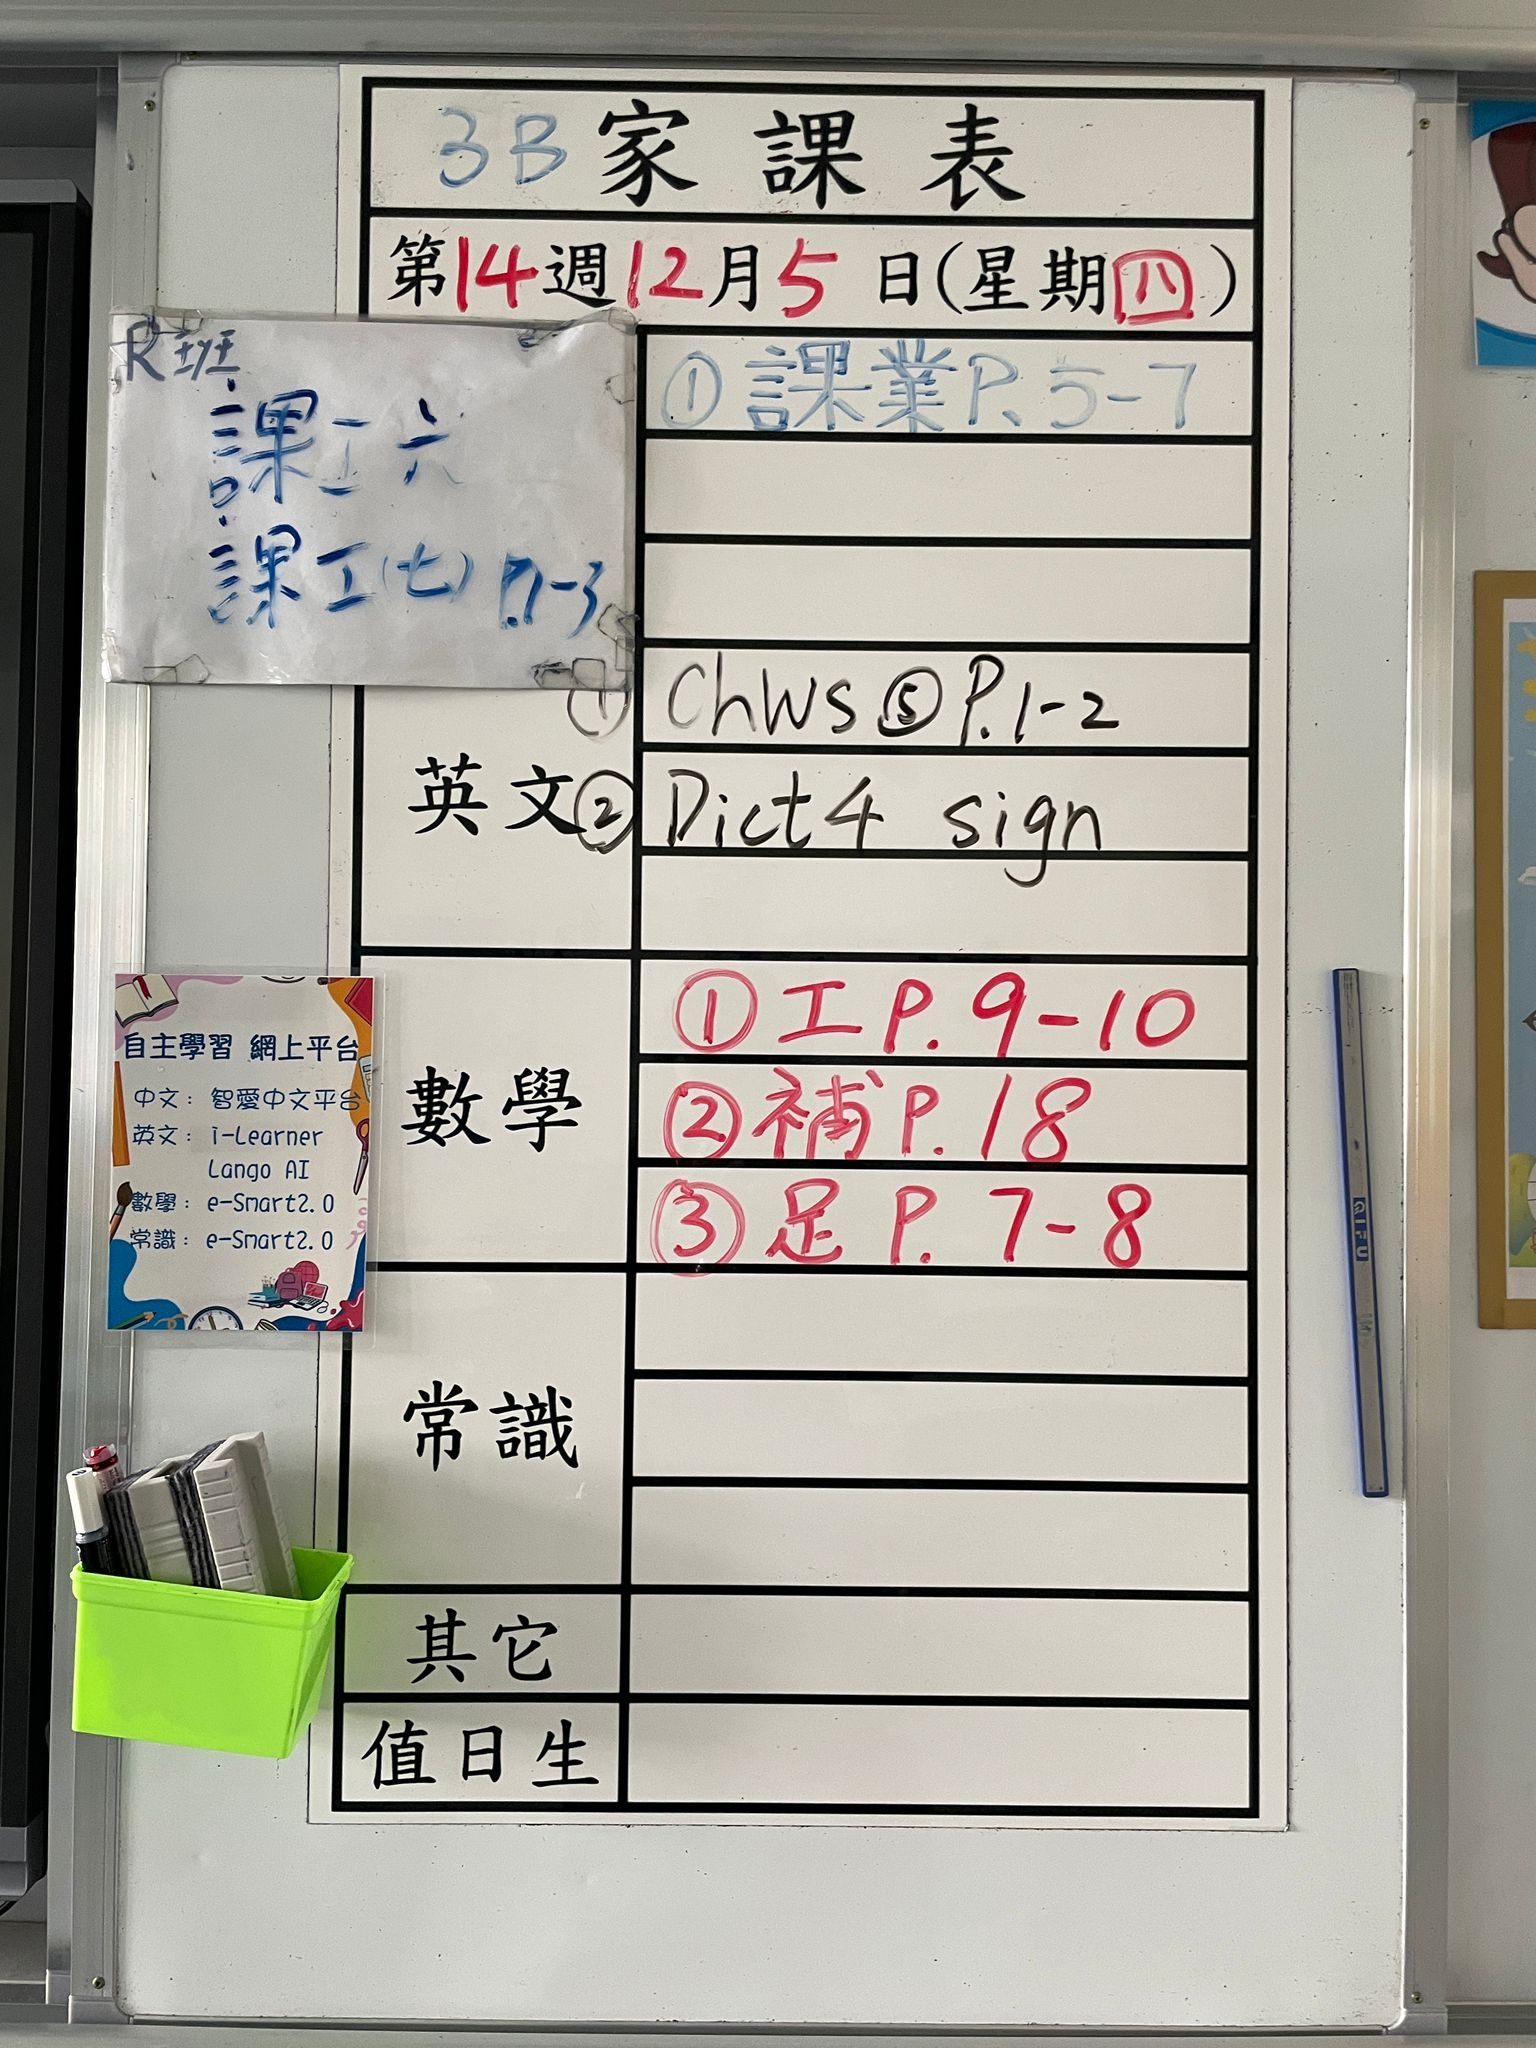 3B 家課表
第14週12月5日(星期四)
R班
課工六
課工(七) P.1-3
① 課業P.5-7
英文
① ChWs⑤P.1-2
② Dict4 sign
數學
① 工P.9-10
② 補P.18
③ 足P.7-8
常識
其它
值日生
自主學習 網上平台
中文：智愛中文平台
英文：i-Learner
Lango AI
數學：e-Smart2.0
常識：e-Smart2.0